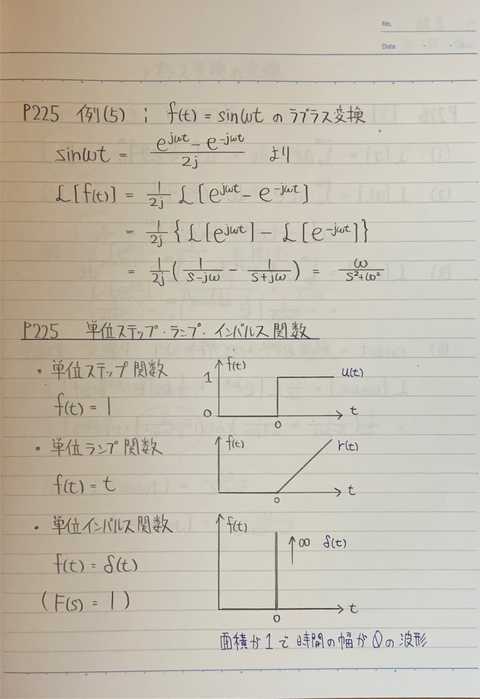 No.
Date
P225 例(5) ; f(t) = sinωt の ラプラス変換
sinωt = (e^{jωt} - e^{-jωt})/2j より
ℒ[f(t)] = 1/2j ℒ[e^{jωt} - e^{-jωt}]
= 1/2j {ℒ[e^{jωt}] - ℒ[e^{-jωt}]}
= 1/2j (1/(s-jω) - 1/(s+jω)) = ω/(s²+ω²)
P225 単位ステップ・ランプ・インパルス関数
・単位ステップ関数
f(t) = 1
f(t)
1
u(t)
0
0
t
・単位ランプ関数
f(t) = t
f(t)
r(t)
0
t
・単位インパルス関数
f(t) = δ(t)
(F(s) = 1)
f(t)
∞ δ(t)
0
t
面積が1で時間の幅が0の波形